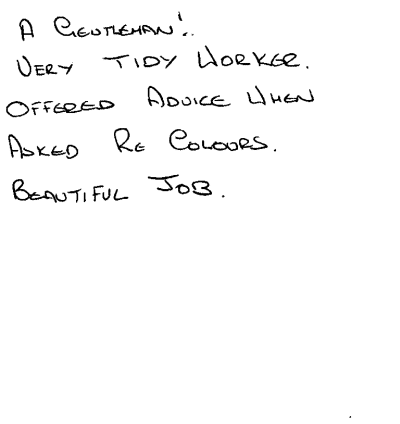 A GENTLEMAN!.
VERY TIDY WORKER.
OFFERED ADVICE WHEN
ASKED RE COLOURS.
BEAUTIFUL JOB.